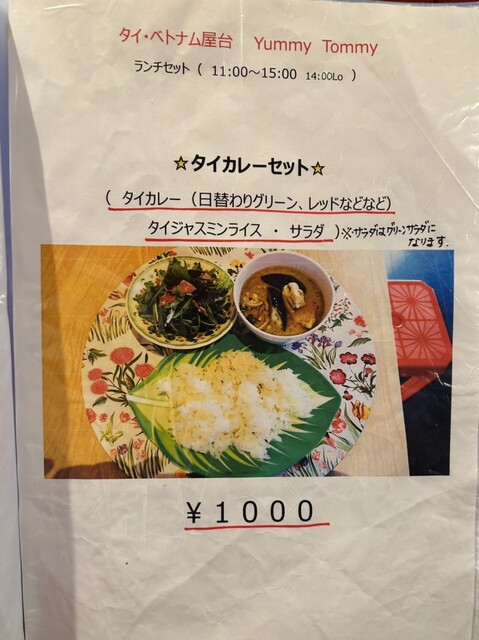 タイ・ベトナム屋台　Yummy Tommy
ランチセット ( 11:00～15:00 14:00Lo )
☆タイカレーセット☆
( タイカレー（日替わりグリーン、レッドなどなど）
タイジャスミンライス ・ サラダ )※サラダはグリーンサラダに
なります.
￥１０００